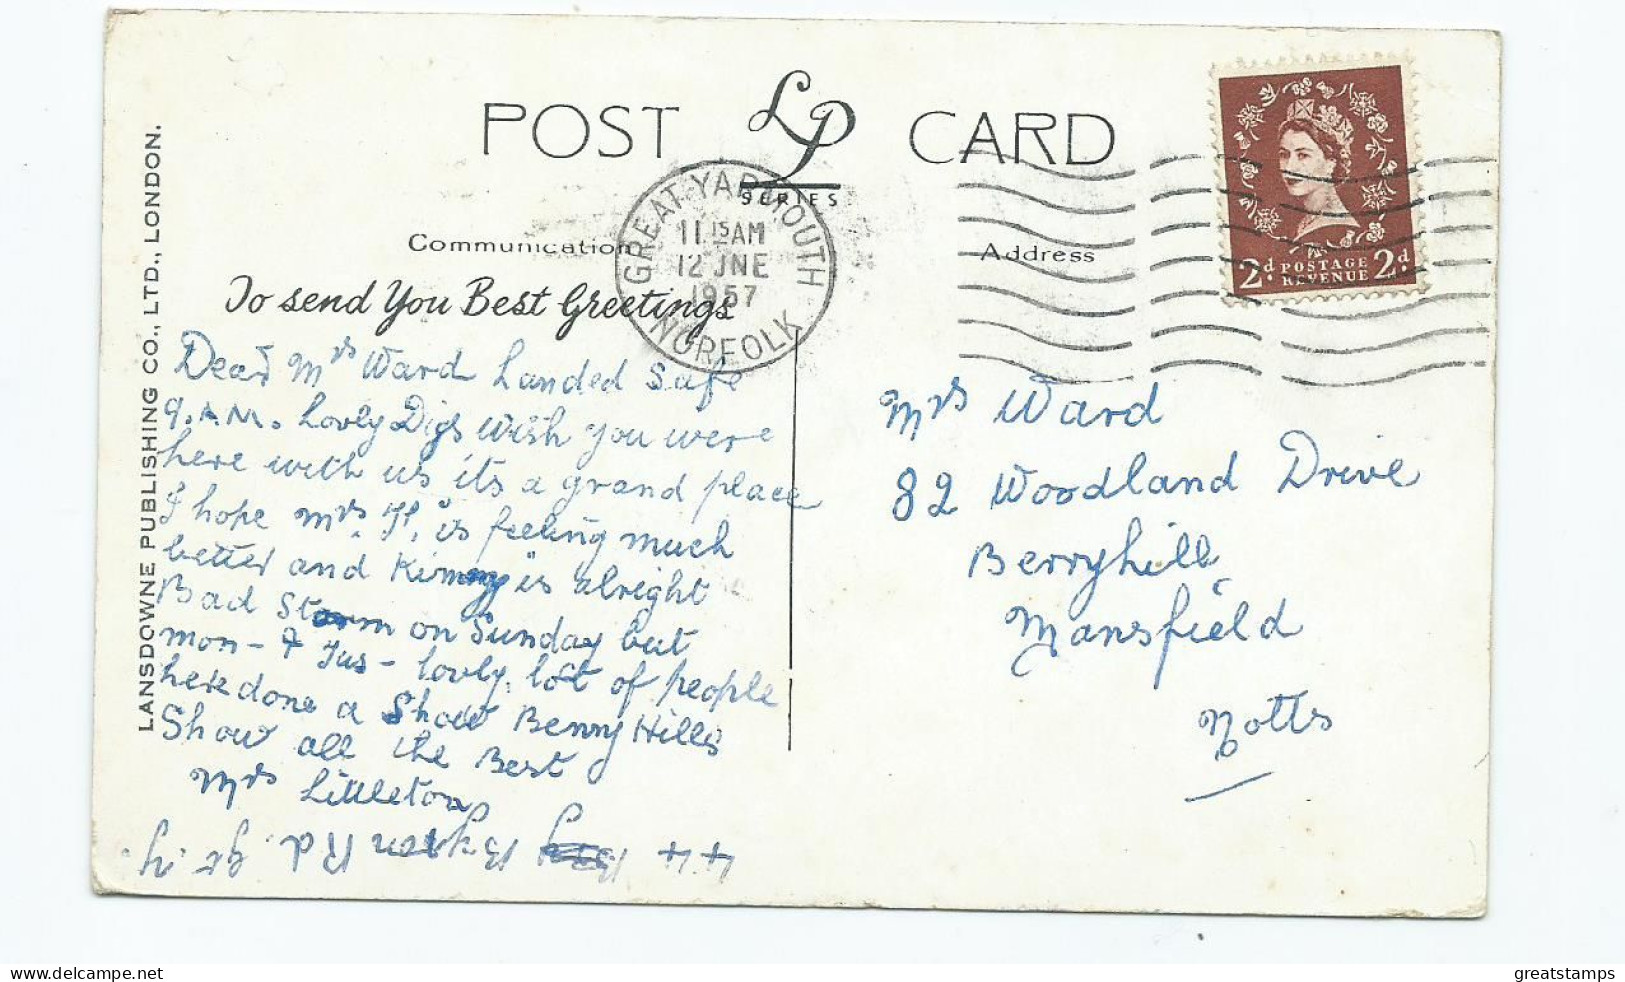 POST LP CARD
SERIES
GREAT YARMOUTH
11 15 AM
12 JNE
1957
NORFOLK
2d POSTAGE REVENUE 2d
Communication
Address
To send You Best Greetings
Dear Mrs Ward Landed Safe
9.A.M. Lovly Digs Wish you were
here with us its a grand place
I hope Mrs H. is feeling much
better and Kimmy is alright
Bad Storm on Sunday but
mon - & Tus - lovly, lot of people
here done a Show Benny Hills
Show all the Best
Mrs Littleton
44 Byron Rd. gt. y.
Mrs Ward
82 Woodland Drive
Berryhill
Mansfield
Notts
LANSDOWNE PUBLISHING CO., LTD., LONDON.
www.delcampe.net
greatstamps